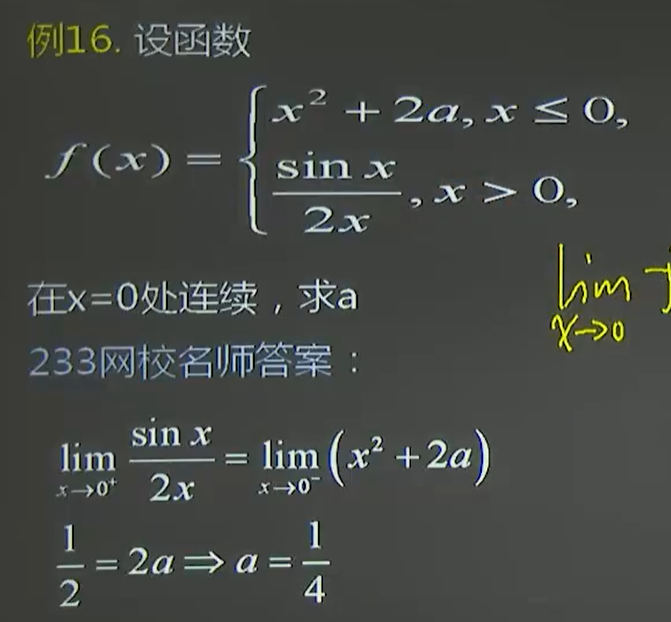 例16. 设函数
f(x) = { x² + 2a, x ≤ 0,
sin x / 2x, x > 0,
在x=0处连续，求a
lim x→0
233网校名师答案：
lim x→0⁺ sin x / 2x = lim x→0⁻ (x² + 2a)
1/2 = 2a ⇒ a = 1/4